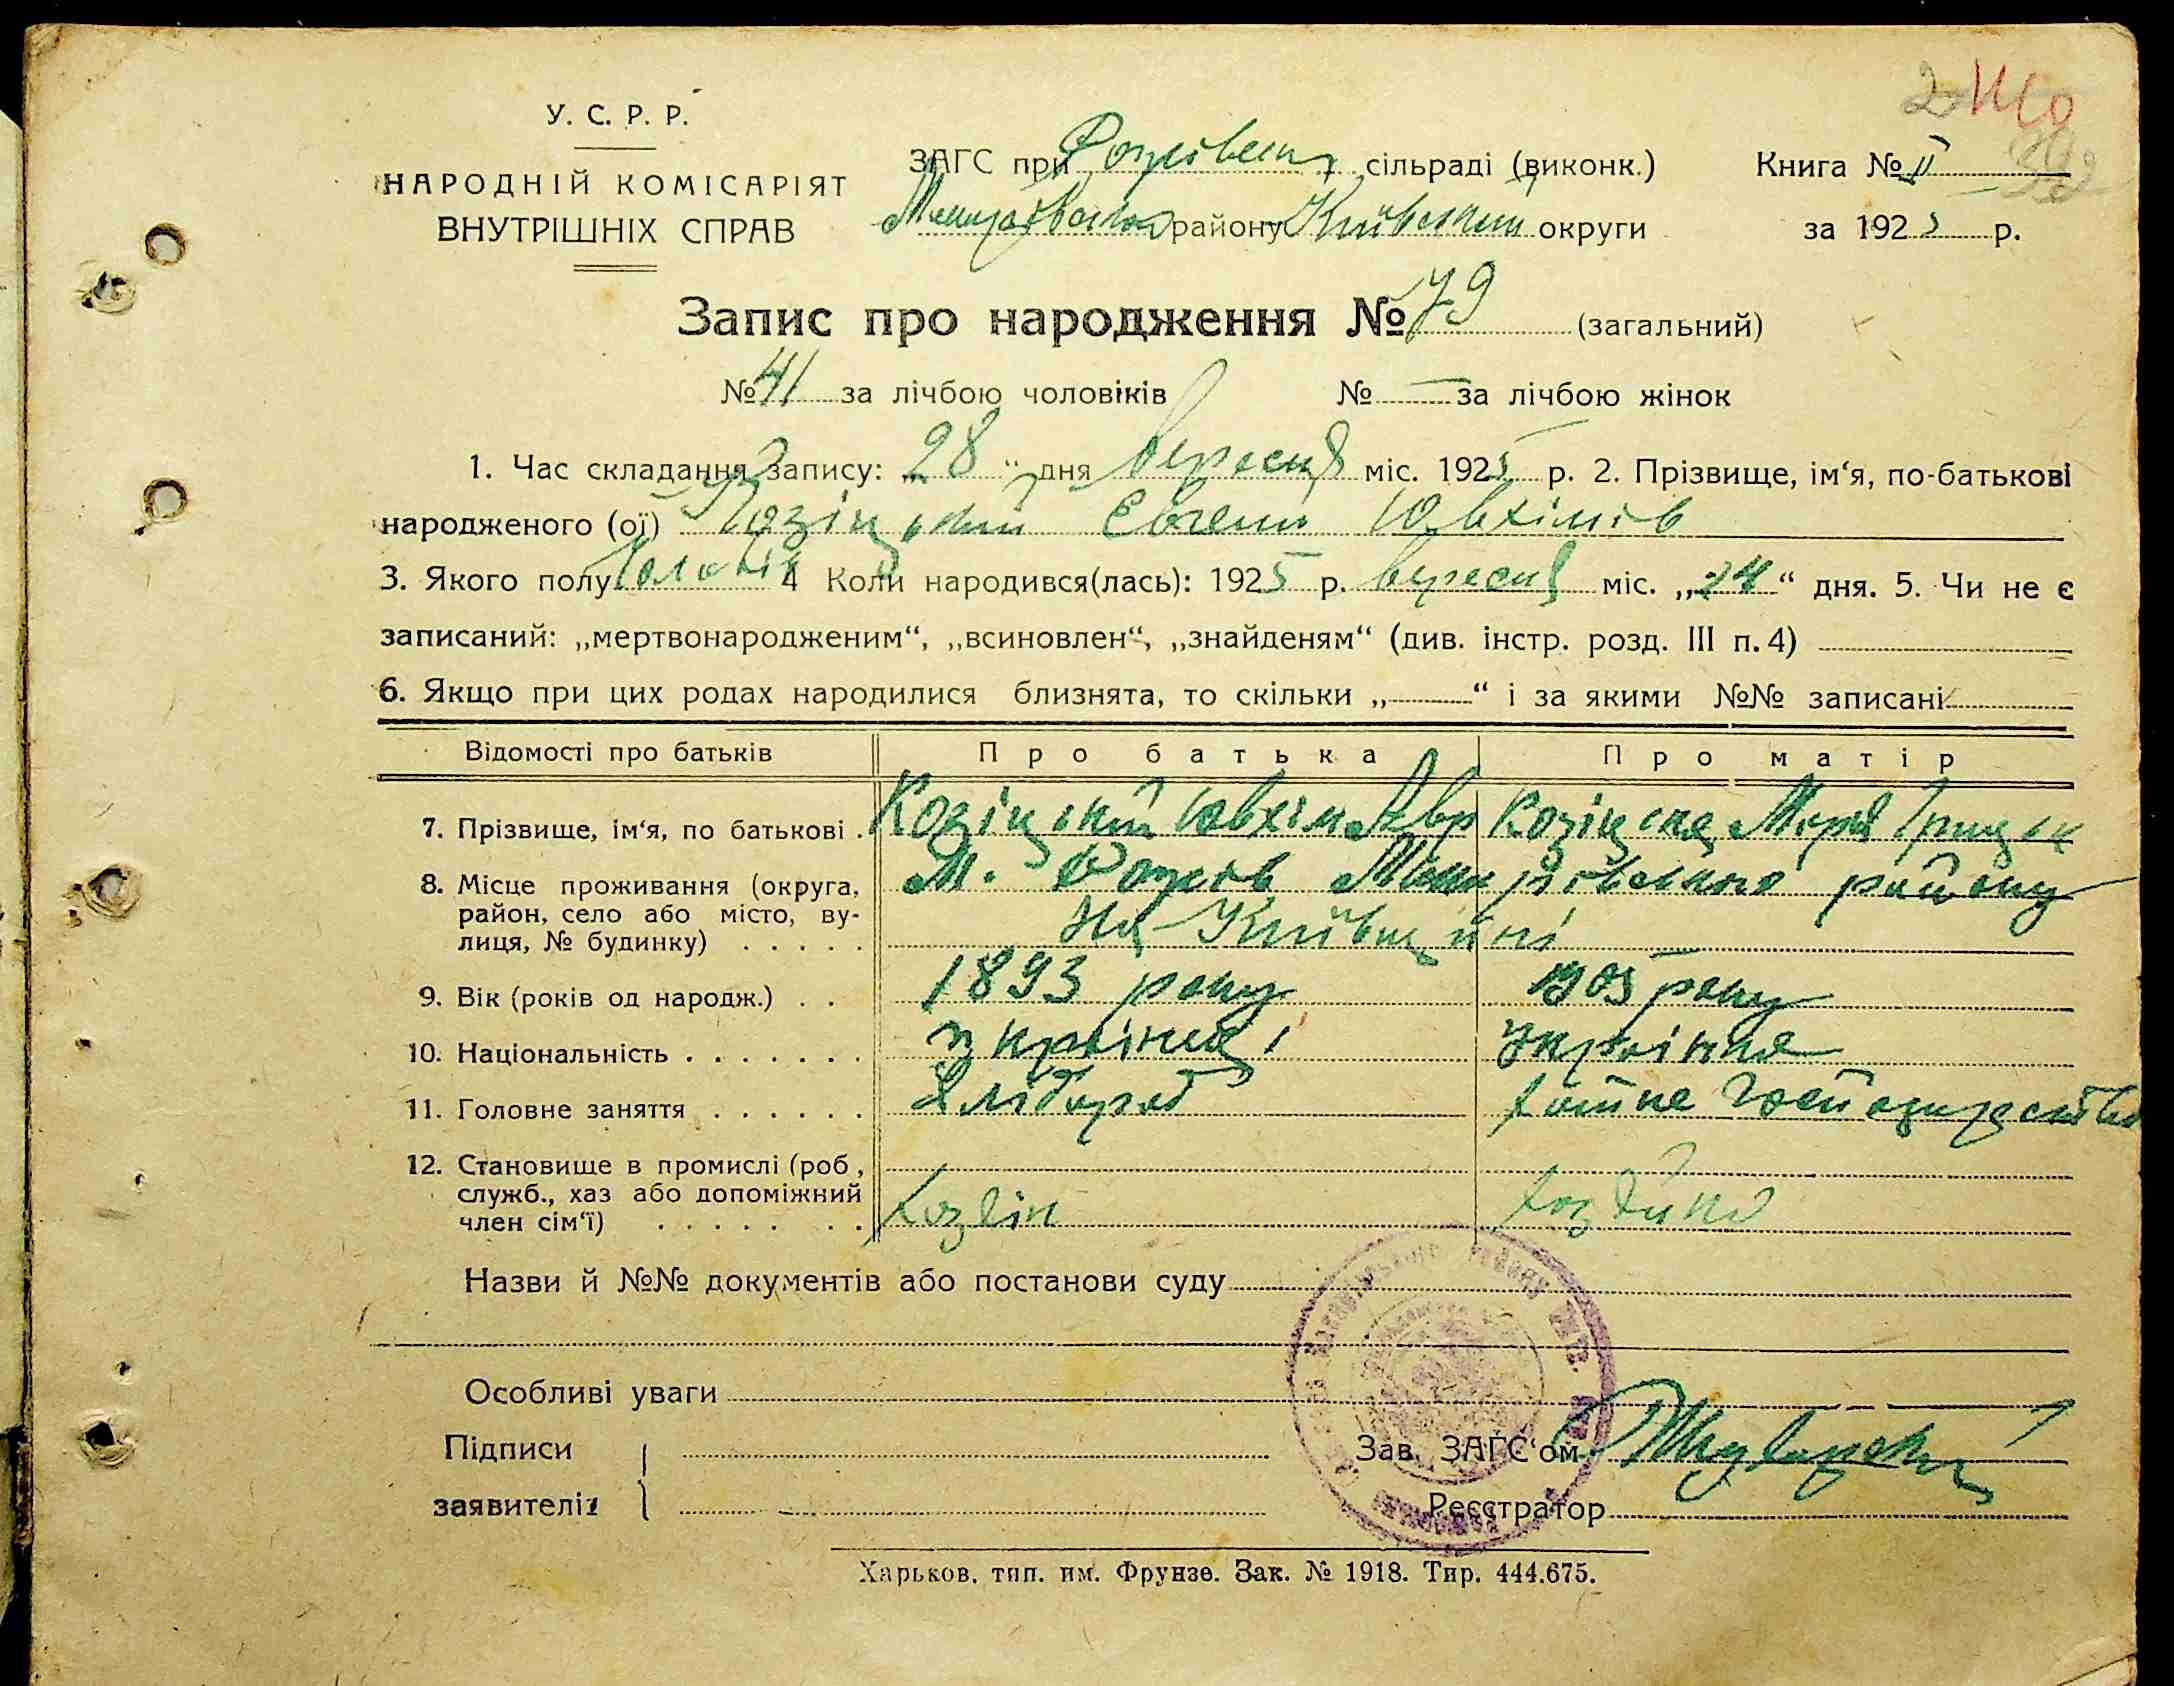 У. С. Р. Р.
НАРОДНІЙ КОМІСАРІЯТ
ВНУТРІШНІХ СПРАВ
ЗАГС при сільраді (виконк.)
району Київської округи
Книга № II
за 1925 р.
Запис про народження № 79 (загальний)
№ 41 за лічбою чоловіків № — за лічбою жінок
1. Час складання запису: „28“ дня вересня міс. 1925 р. 2. Прізвище, ім‘я, по-батькові
народженого (ої) Козіцький Євгений Ювхімів
3. Якого полу чоловік 4 Коли народився(лась): 1925 р. вересня міс. „24“ дня. 5. Чи не є
записаний: „мертвонародженим“, „всиновлен“, „знайденям“ (див. інстр. розд. III п. 4)
6. Якщо при цих родах народилися близнята, то скільки „—“ і за якими №№ записані
Відомості про батьків Про батька Про матір
7. Прізвище, ім‘я, по батькові . Козіцький Ювхім Козіцька Марія
8. Місце проживання (округа, М. району
район, село або місто, ву-
лиця, № будинку) . . . . . на Київщині
9. Вік (років од народж.) . . 1893 року 1903 року
10. Національність . . . . . . . українець українка
11. Головне заняття . . . . . . Хлібороб
12. Становище в промислі (роб,
служб., хаз або допоміжний
член сім‘ї) . . . . . . .
Назви й №№ документів або постанови суду
Особливі уваги
Підписи
заявителів
Зав. ЗАГС‘ом
Реєстратор
Харьков, тип. им. Фрунзе. Зак. № 1918. Тир. 444.675.